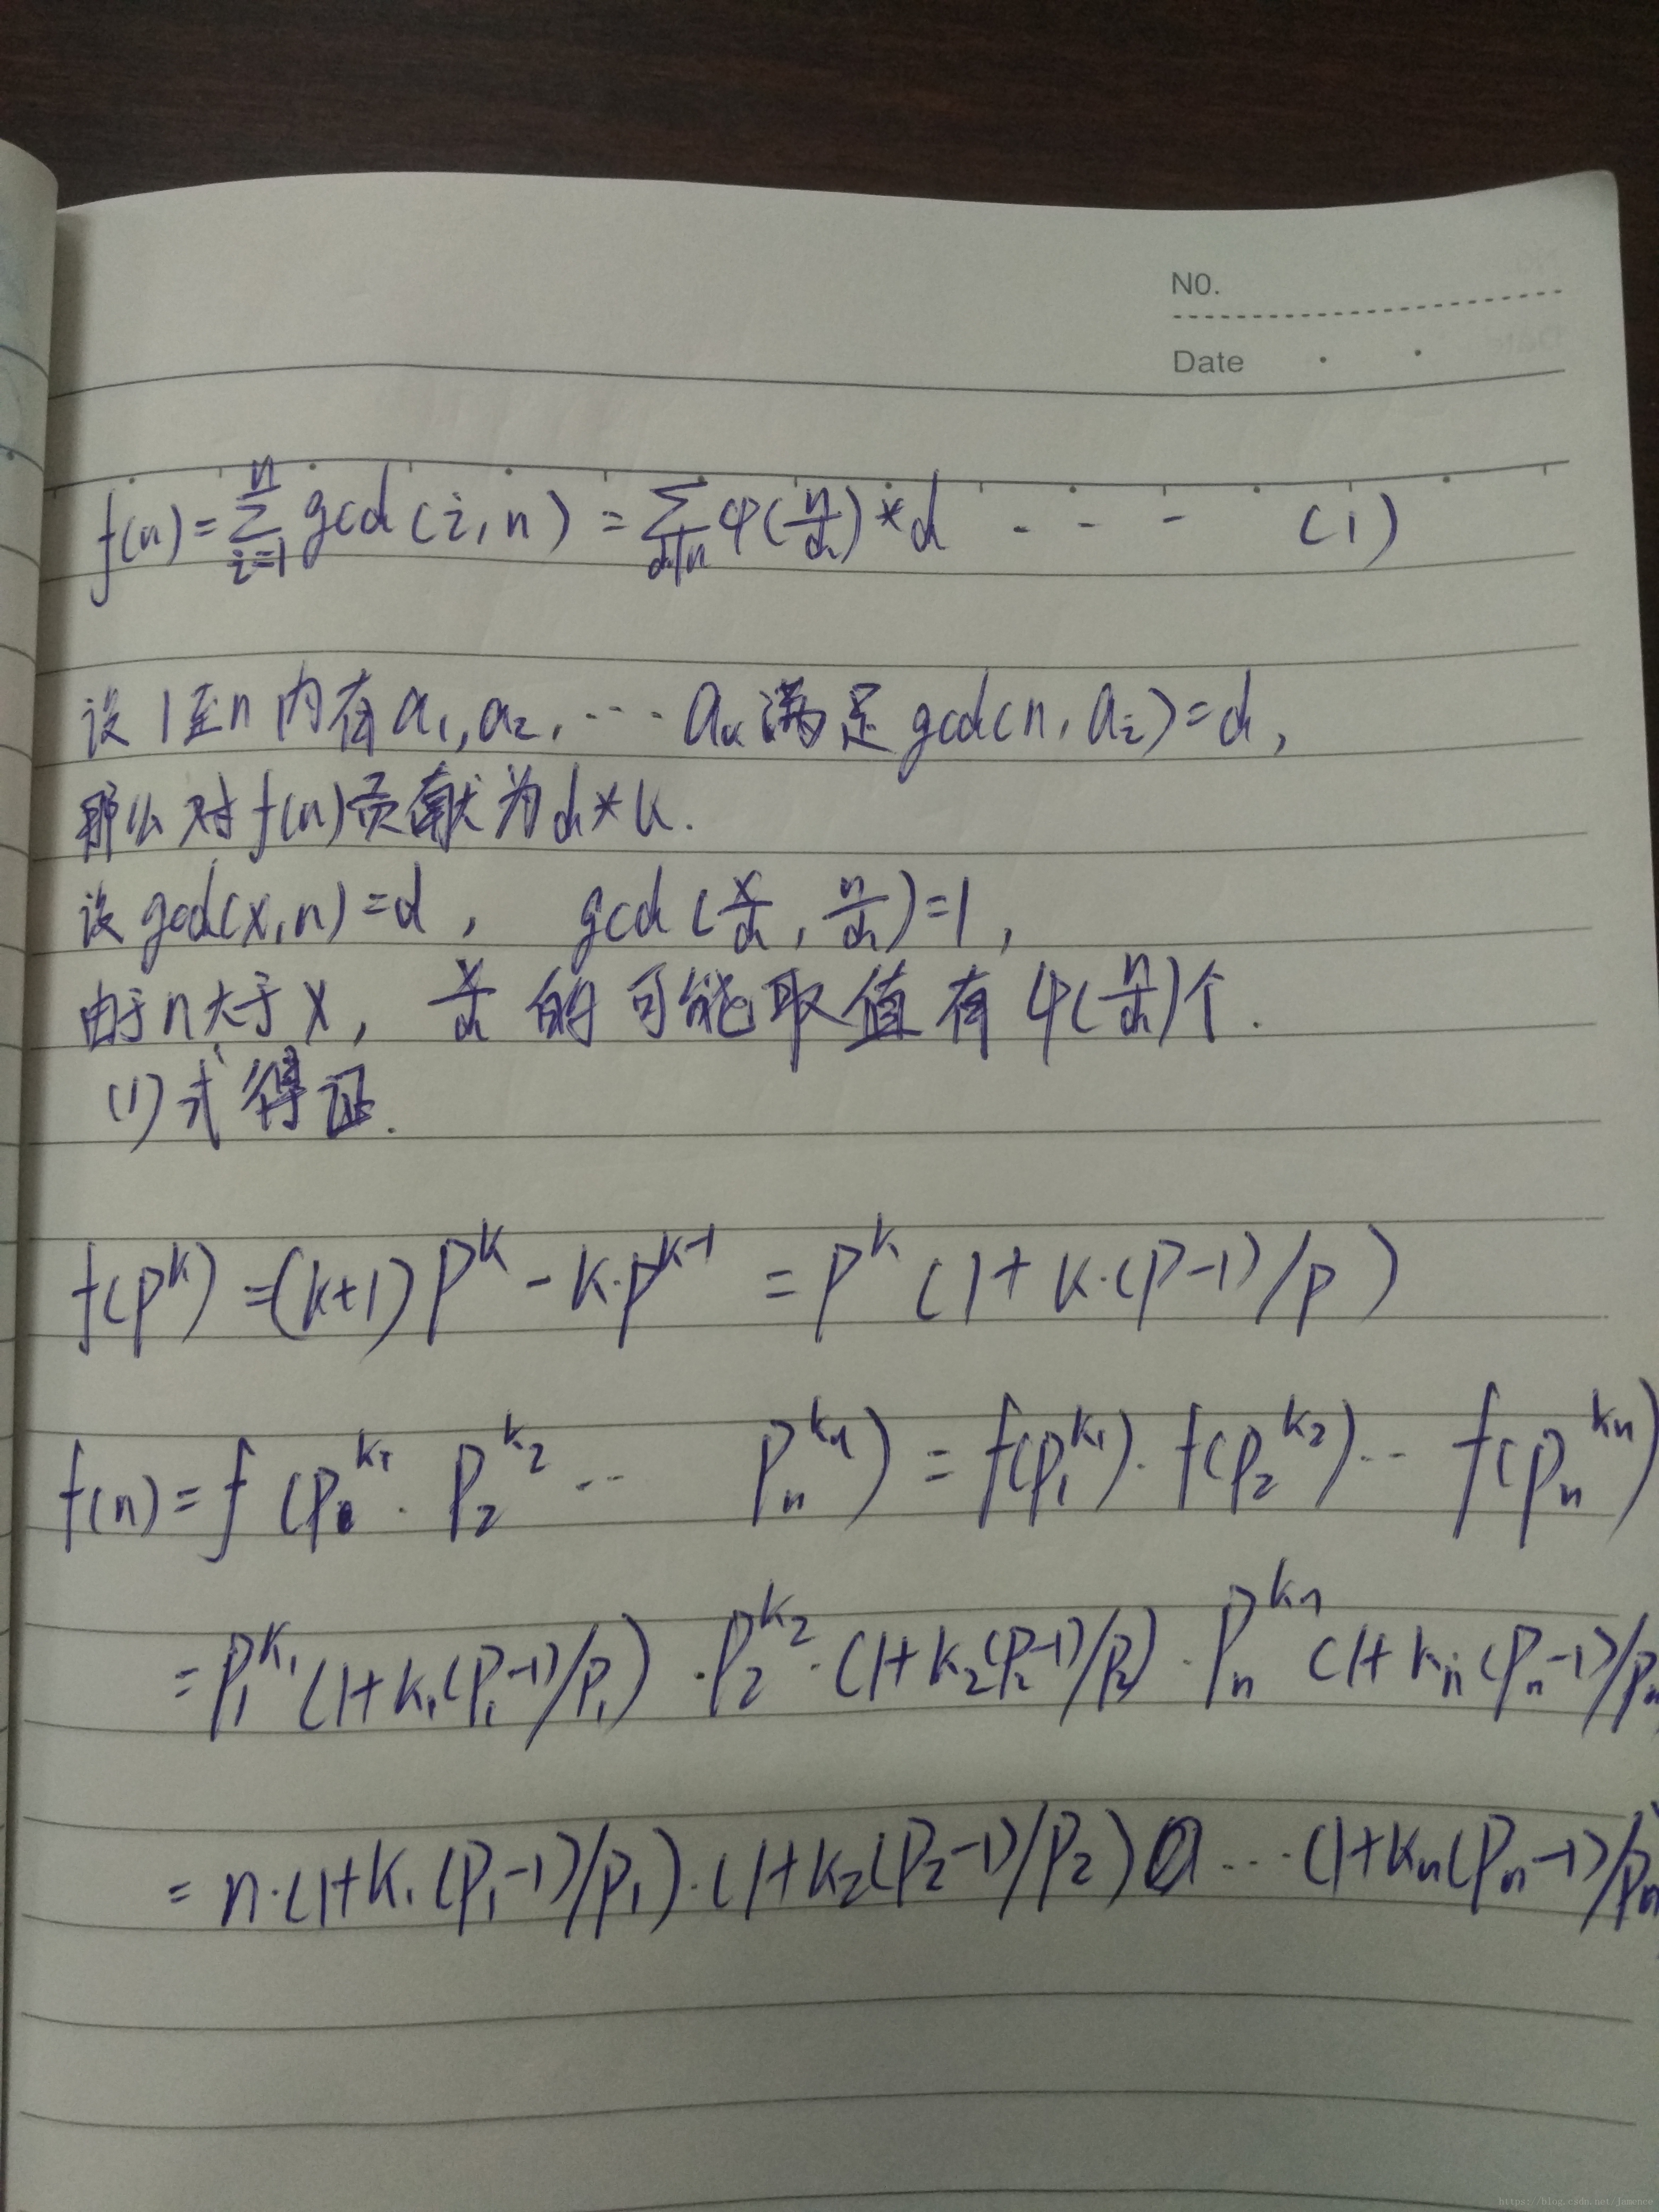 NO.
Date
f(n) = \sum_{i=1}^{n} gcd(i, n) = \sum_{d|n} φ(\frac{n}{d}) * d - - - (1)
设 1至n 内有 a_1, a_2, ... a_k 满足 gcd(n, a_i) = d,
那么对 f(n) 贡献为 d*k.
设 gcd(x, n) = d , gcd(\frac{x}{d}, \frac{n}{d}) = 1 ,
由于 n 大于 x, \frac{x}{d} 的可能取值有 φ(\frac{n}{d}) 个.
(1) 式得证.
f(p^k) = (k+1) p^k - k·p^{k-1} = p^k (1 + k·(p-1)/p)
f(n) = f(p_1^{k_1} · p_2^{k_2} ... p_n^{k_n}) = f(p_1^{k_1}) · f(p_2^{k_2}) ... f(p_n^{k_n})
= p_1^{k_1} (1+k_1(p_1-1)/p_1) · p_2^{k_2} · (1+k_2(p_2-1)/p_2) · p_n^{k_n} (1+k_n(p_n-1)/p_n
= n·(1+k_1(p_1-1)/p_1) · (1+k_2(p_2-1)/p_2) ... (1+k_n(p_n-1)/p_n
https://blog.csdn.net/jumence